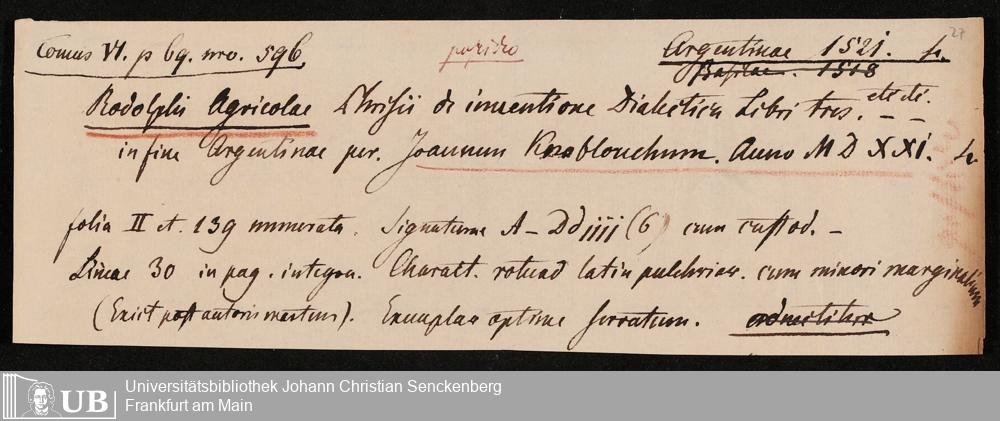 Tomus VI. p 69. nro. 596.
Argentinae 1521. 4.
Basileae. 1518
27
Rodolphi Agricolae Phrisii de inventione Dialectica Libri tres. etc etc. – –
in fine Argentinae per. Joannem Knoblouchum. Anno M D XXI. 4
folia II et. 139 numerata. Signaturae A – Dd iiii (6) cum custod. –
Lineae 30 in pag. integra. Charact. rotund latin pulchrior. cum minori marginalium
(Exiit post autoris mortem). Exemplar optime servatum.
UB
Universitätsbibliothek Johann Christian Senckenberg
Frankfurt am Main